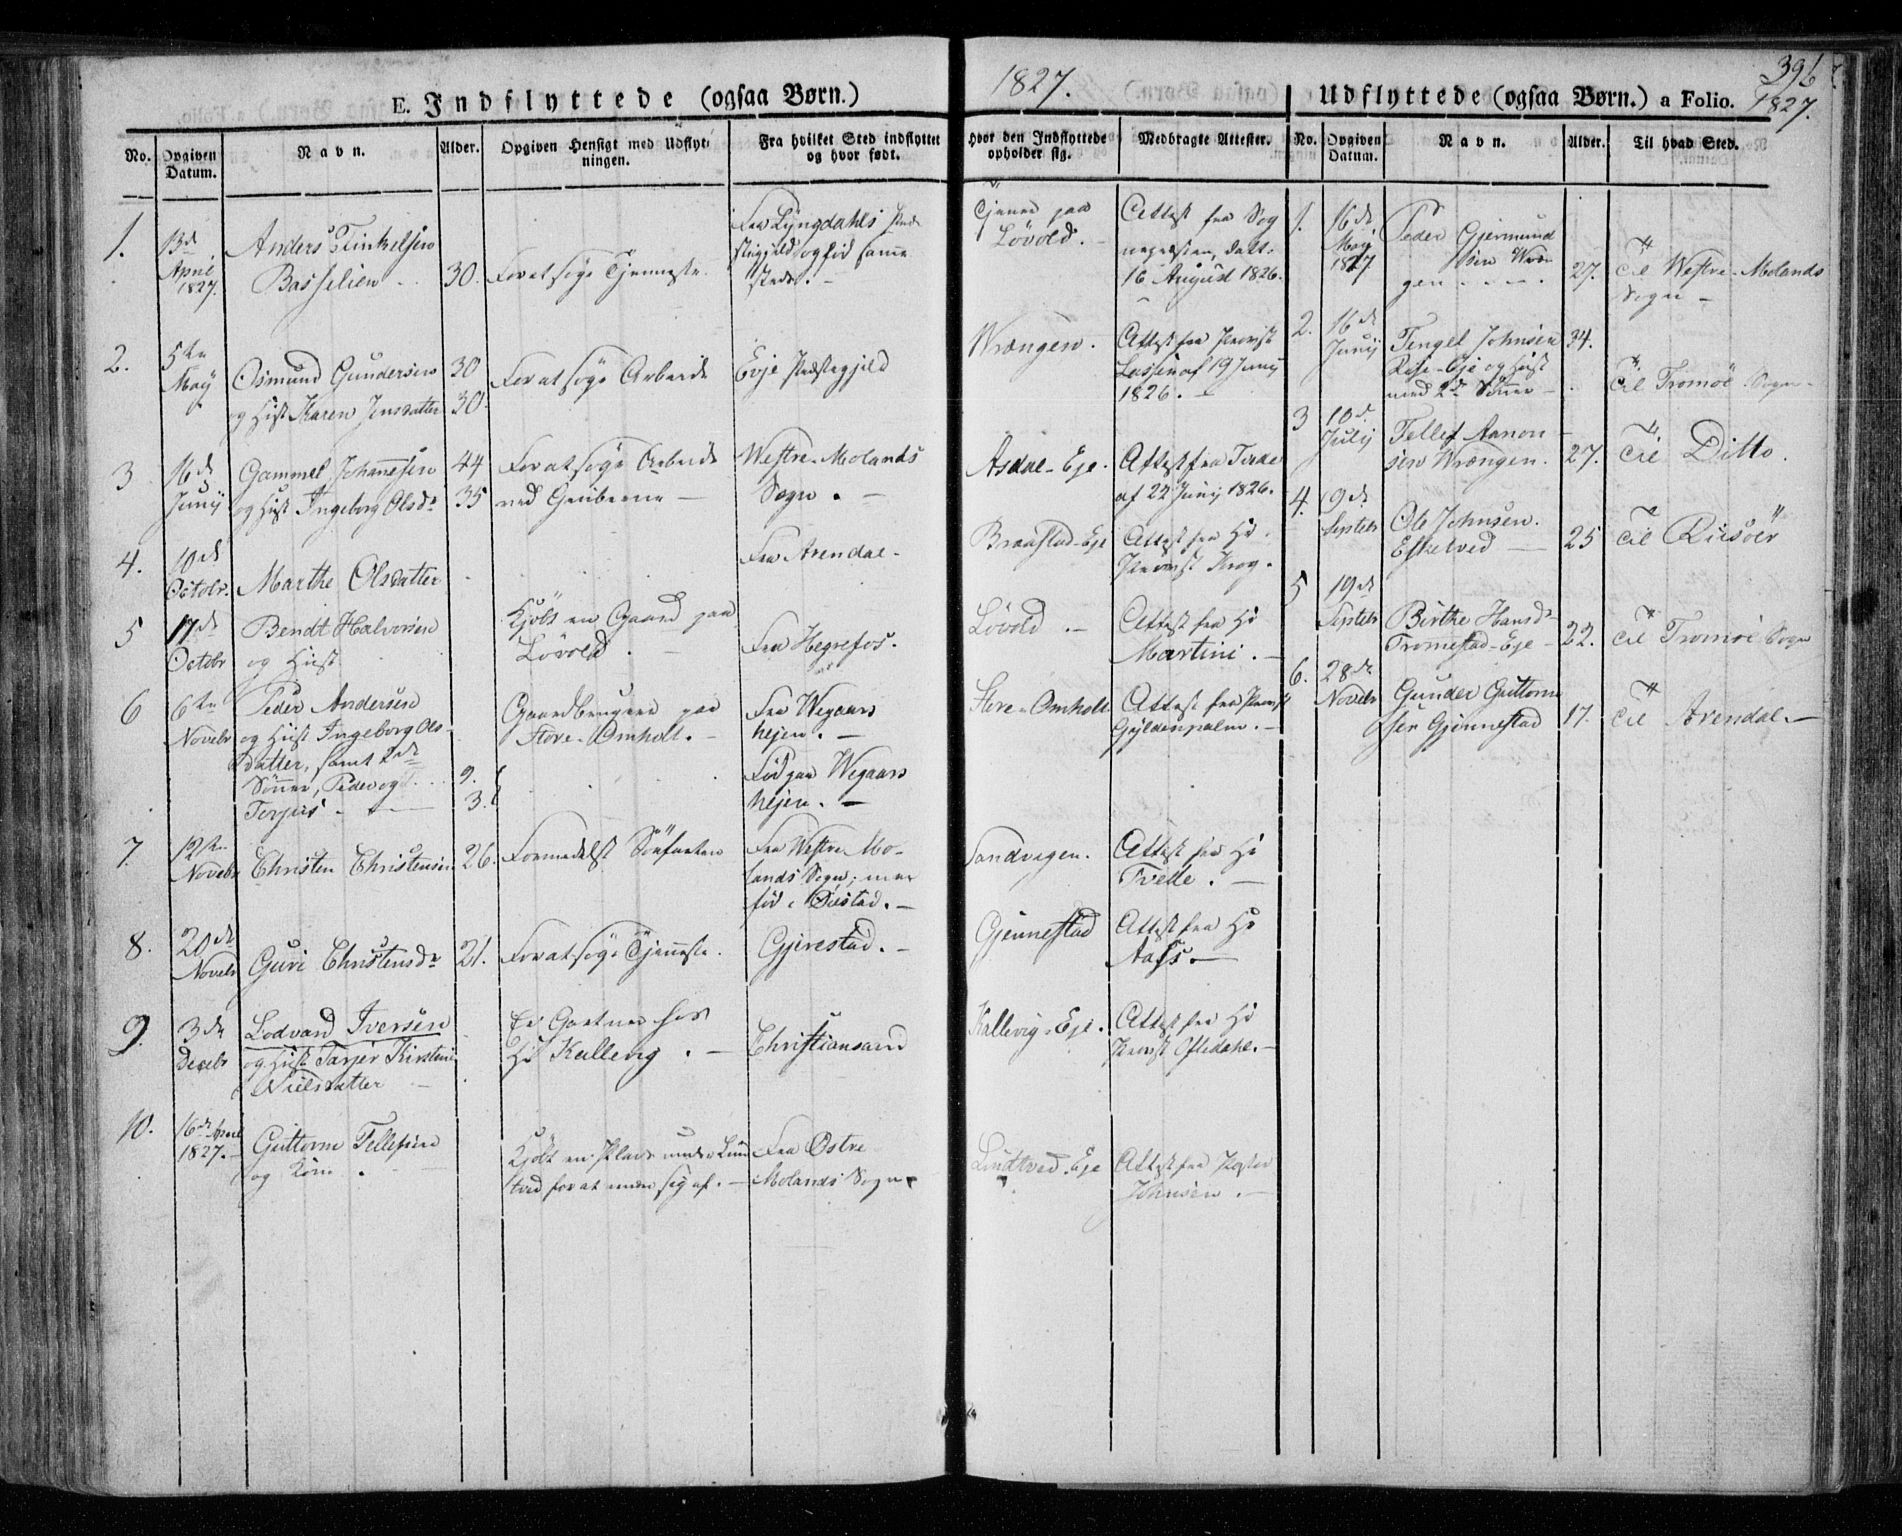 E. Indflyttede (ogsaa Børn.)
1827.
Udflyttede (ogsaa Børn.) a Folio.
396
1827.
No.
Opgiven Datum.
Navn.
Alder.
Opgiven Hensigt med Udflytningen.
Fra hvilket Sted indflyttet og hvor født.
Hvor den Indflyttede opholder sig.
Medbragte Attester.
No.
Opgiven Datum.
Navn.
Alder.
Til hvad Sted.
1.
13de
April
1827.
Anders
Basselien
30.
For at søge Tjenneste.
Fra Lyngdahls
stegjeld og fød samme
steds.
Tjener paa
Løvold.
Attest fra Sog
nepræsten, datt.
16 August 1826.
2.
5te
Maÿ
Osmund Gundersen
og Hust Karen Jensdatter
30
30.
For at søge Arbeide
Evje Præstegjeld
Wrængen.
Attest fra Provst
Lassen af 19 Junÿ
1826.
3
16de
Junÿ
Gammel Johannesen
og Hust Ingeborg Olsdr
44
35
For at søge Arbeide
ved Gruberne
Westre Molands
Sogn.
Asdal-Eje.
Attest fra
af 22 Junÿ 1826.
4.
10de
Octobr.
Marthe Olsdatter
Fra Arendal.
Braastad-Eje
Attest fra Hr.
Provst Krog.
5
17de
Octobr
Bendt Halvorsen
og Hust.
Kjøbt en Gaard paa
Løvold.
Fra Hegrefos.
Løvold
Attest fra Hr
Martini.
6
6te
Novebr
Peder Andersen
og Hust Ingeborg Ols-
datter, samt 2de
Sønner, Peder og
Terjus.
9.
3.
Gaardbruger paa
Store-Omholt.
Fra Wegaars
hejen.
Fød paa Wegaars
hejen.
Store-Omholt
Attest fra Provst
Gyldenpalm.
7.
12te
Novebr
Christen Christensen
26.
Formedelst Søefarten
Fra Westre Mo-
lands Sogn; men
fød i Øiestad.
Sandvigen.
Attest fra Hr
Tvede.
8.
20de
Novebr
Guri Christensdr
21.
For at søge Tjenneste.
Gjerestad.
Gjennestad
Attest fra Hr
Aass.
9.
3de
Decebr
Lodvard Iversen
og Hust Tarjer Kirstine
Nielsdatter
Er Gartner hos
Hr Kallevig.
Christiansand
Kallevig-Eje.
Attest fra Hr
Provst Oftedahl.
10.
16de April
1827.
Guttorm Tellefsen
og Kone.
Kjøbt en Plads under Lund
tved for at nære sig af.
Fra Østre
Molands Sogn.
Lundtved-Eje
Attest fra Pastor
Johnsen.
1.
16de
May
1827
Peder Gjermund
sen Wræn
gen
27.
Til Westre-Molands
Sogn
2.
16de
Junÿ
Tengel Johnsen
Rise-Eje og Hust
med 2de Sønner
34.
Til Tromøe Sogn
3
10de
Julÿ
Tellef Aanon
sen Wrængen.
27.
Til Ditto.
4.
9de
Septebr
Ole Johnsen.
Eskelved
25
Til Riisøer
5
19de
Septebr
Birthe Hansdr
Tromestad-Eje
22.
Til Tromøe Sogn
6.
28de
Novebr
Gunder Guttorm
sen Gjennestad
17.
Til Arendal.